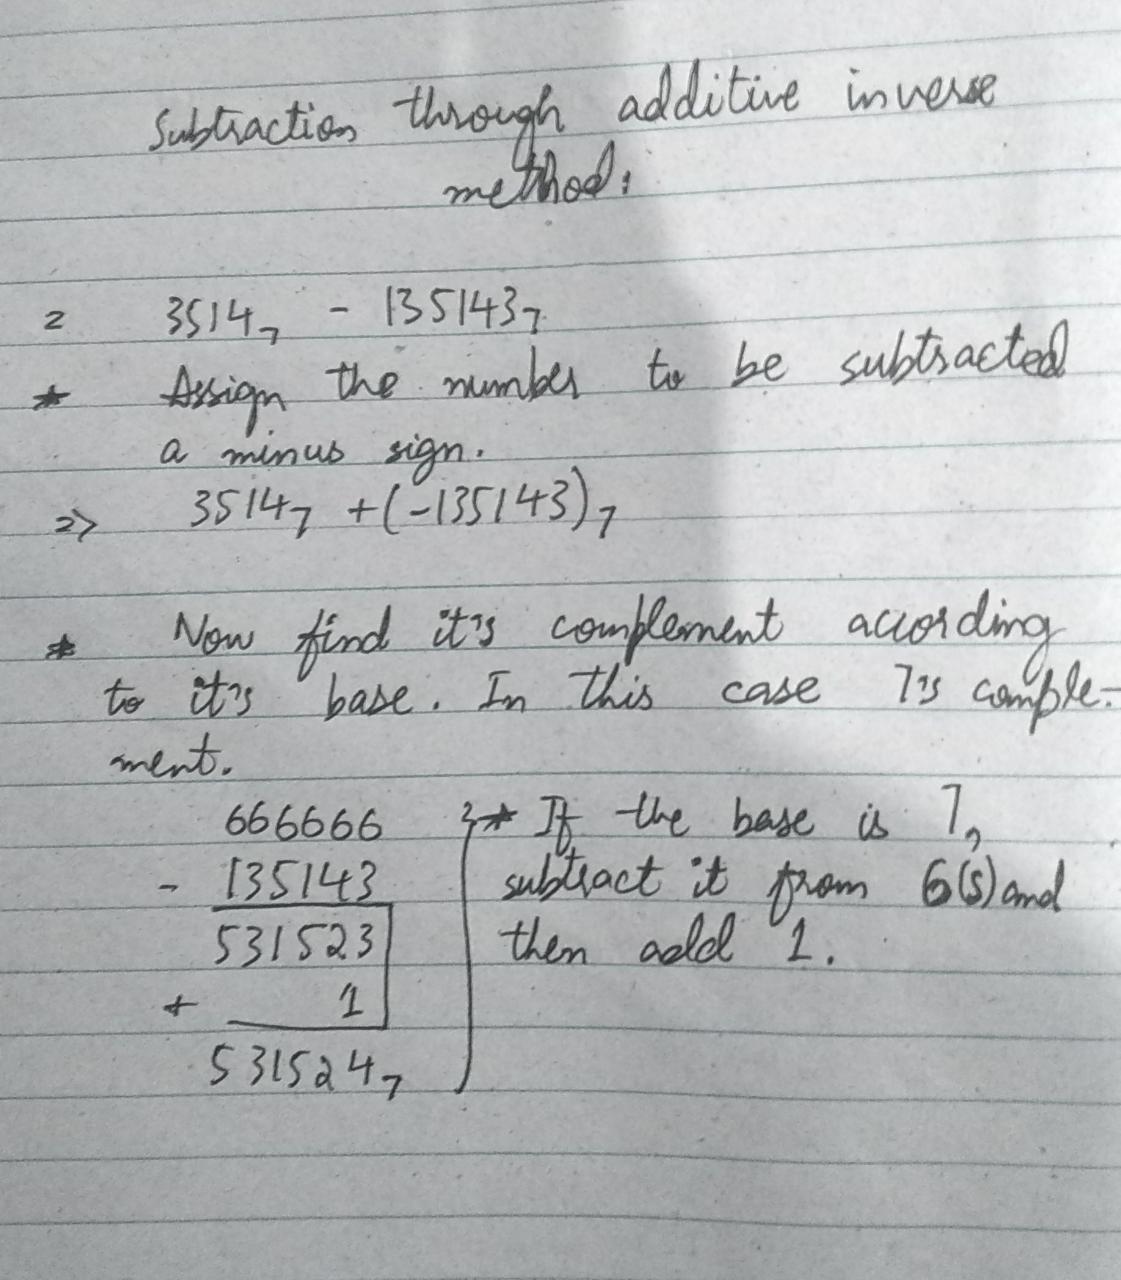 Subtraction through additive inverse
method:
2 3514₇ - 135143₇
* Assign the number to be subtracted
a minus sign.
=> 3514₇ +(-135143)₇
* Now find it's complement according
to it's base. In this case 7's comple-
ment.
666666 * If the base is 7,
- 135143 subtract it from 6(s) and
531523 then add 1.
+ 1
531524₇